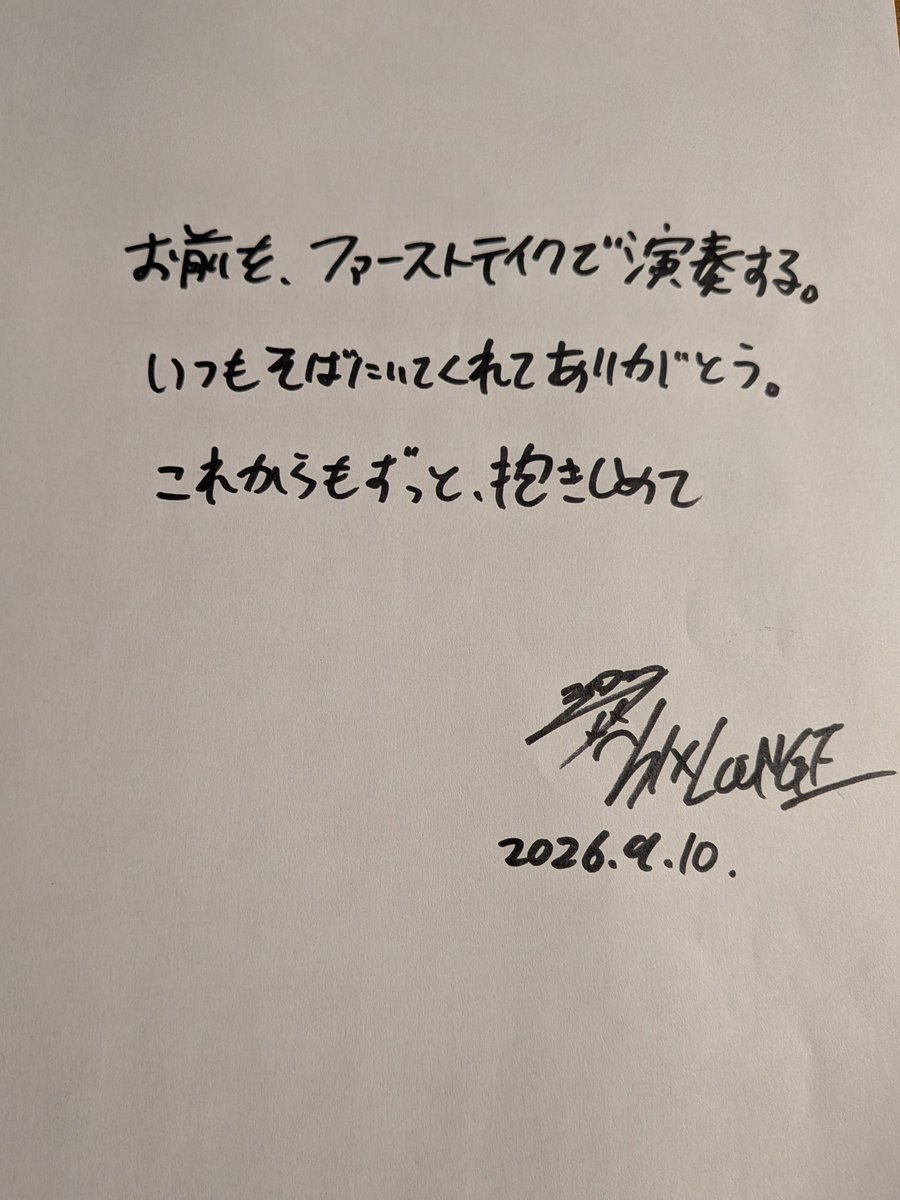 お前を、ファーストテイクで演奏する。
いつもそばにいてくれてありがとう。
これからもずっと、抱きしめて
LOUNGE
2026.9.10.